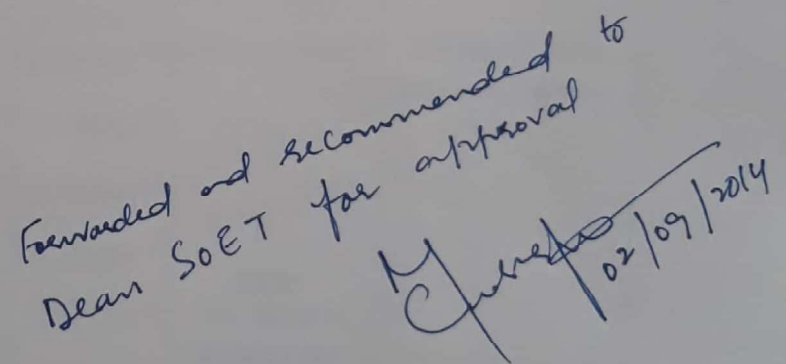 Forwarded and recommended to
Dean SOET for approval
02/09/2014